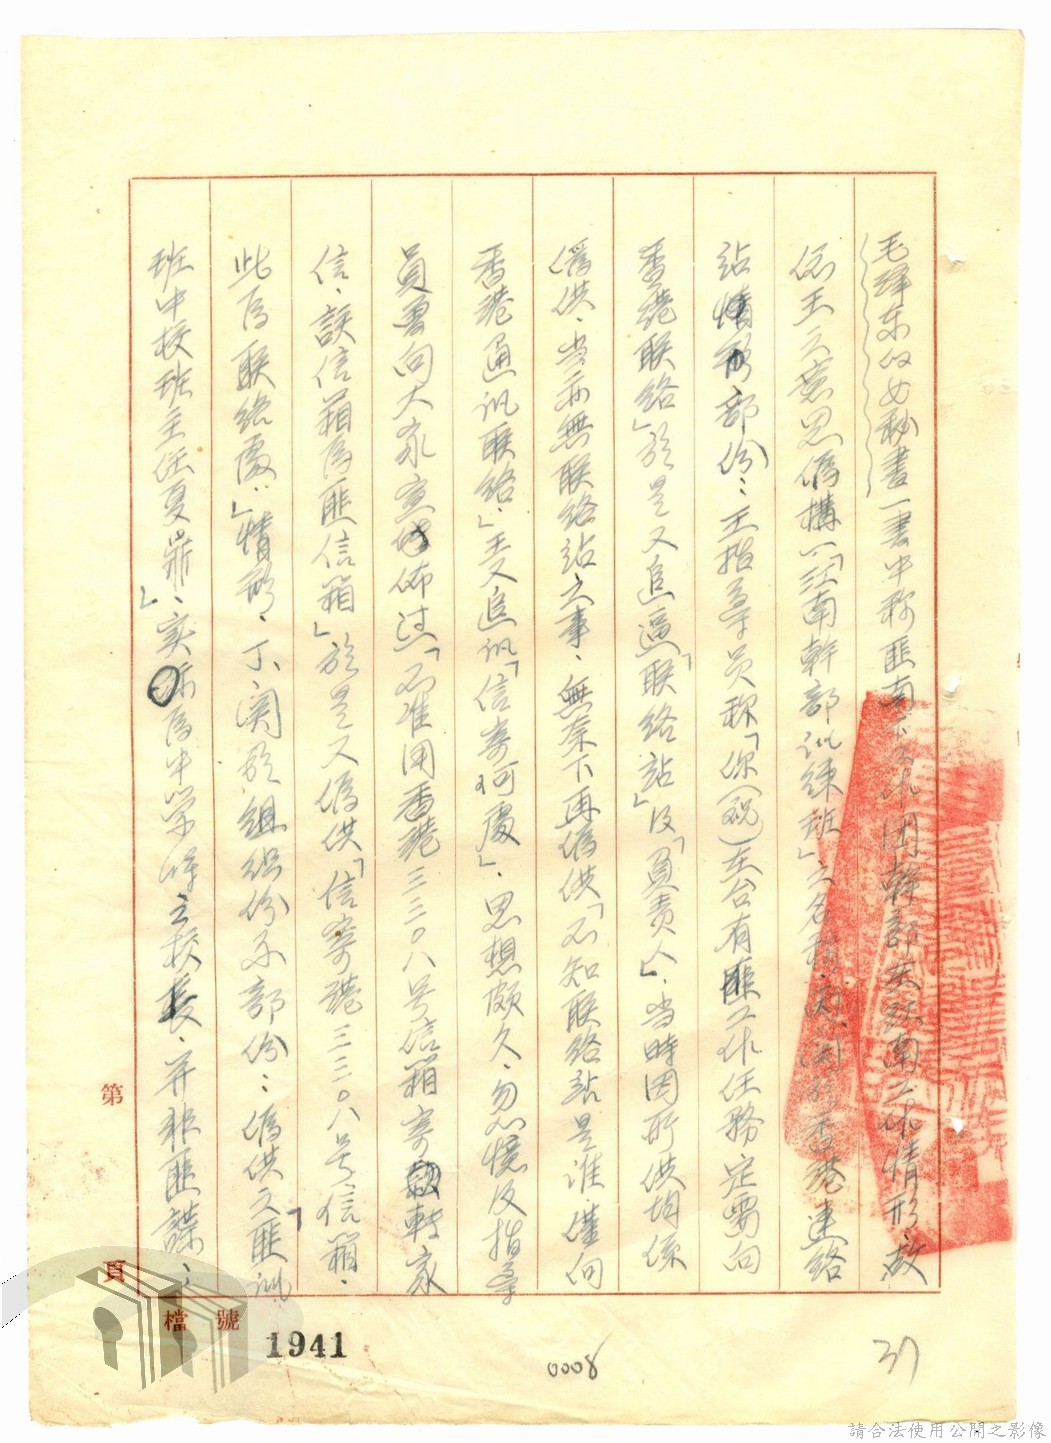 毛澤东的女秘書一書中称匪南下工作团幹部英跃南工作情形、故
依王之意思偽構一「江南幹部訊練班」之名称、丙、関於香港連絡
站情形部份：王指導员称「你(祝)在台有匪工作任務定要向
香港联絡」於是又追逼「联絡站」及「負责人」、当時因所供均係
偽供、当亦無联絡站之事、無奈下再偽供「不知联絡站是谁、僅向
香港通訊联络、」王又追訊「信寄何處」、思想頗久、勿忆及指導
員曾向大家宣佈过「不准用香港三三○八号信箱寄轉家
信、該信箱為匪信箱」於是又偽供「信寄港三三○八号、信箱、
此為联絡處」情形、丁、関於組織份子部份：偽供之「匪訊
班中校班主任夏鼎」、实际為中学時之校長、并非匪諜、
第
頁
檔 號
1941
0008
37
請合法使用公開之影像